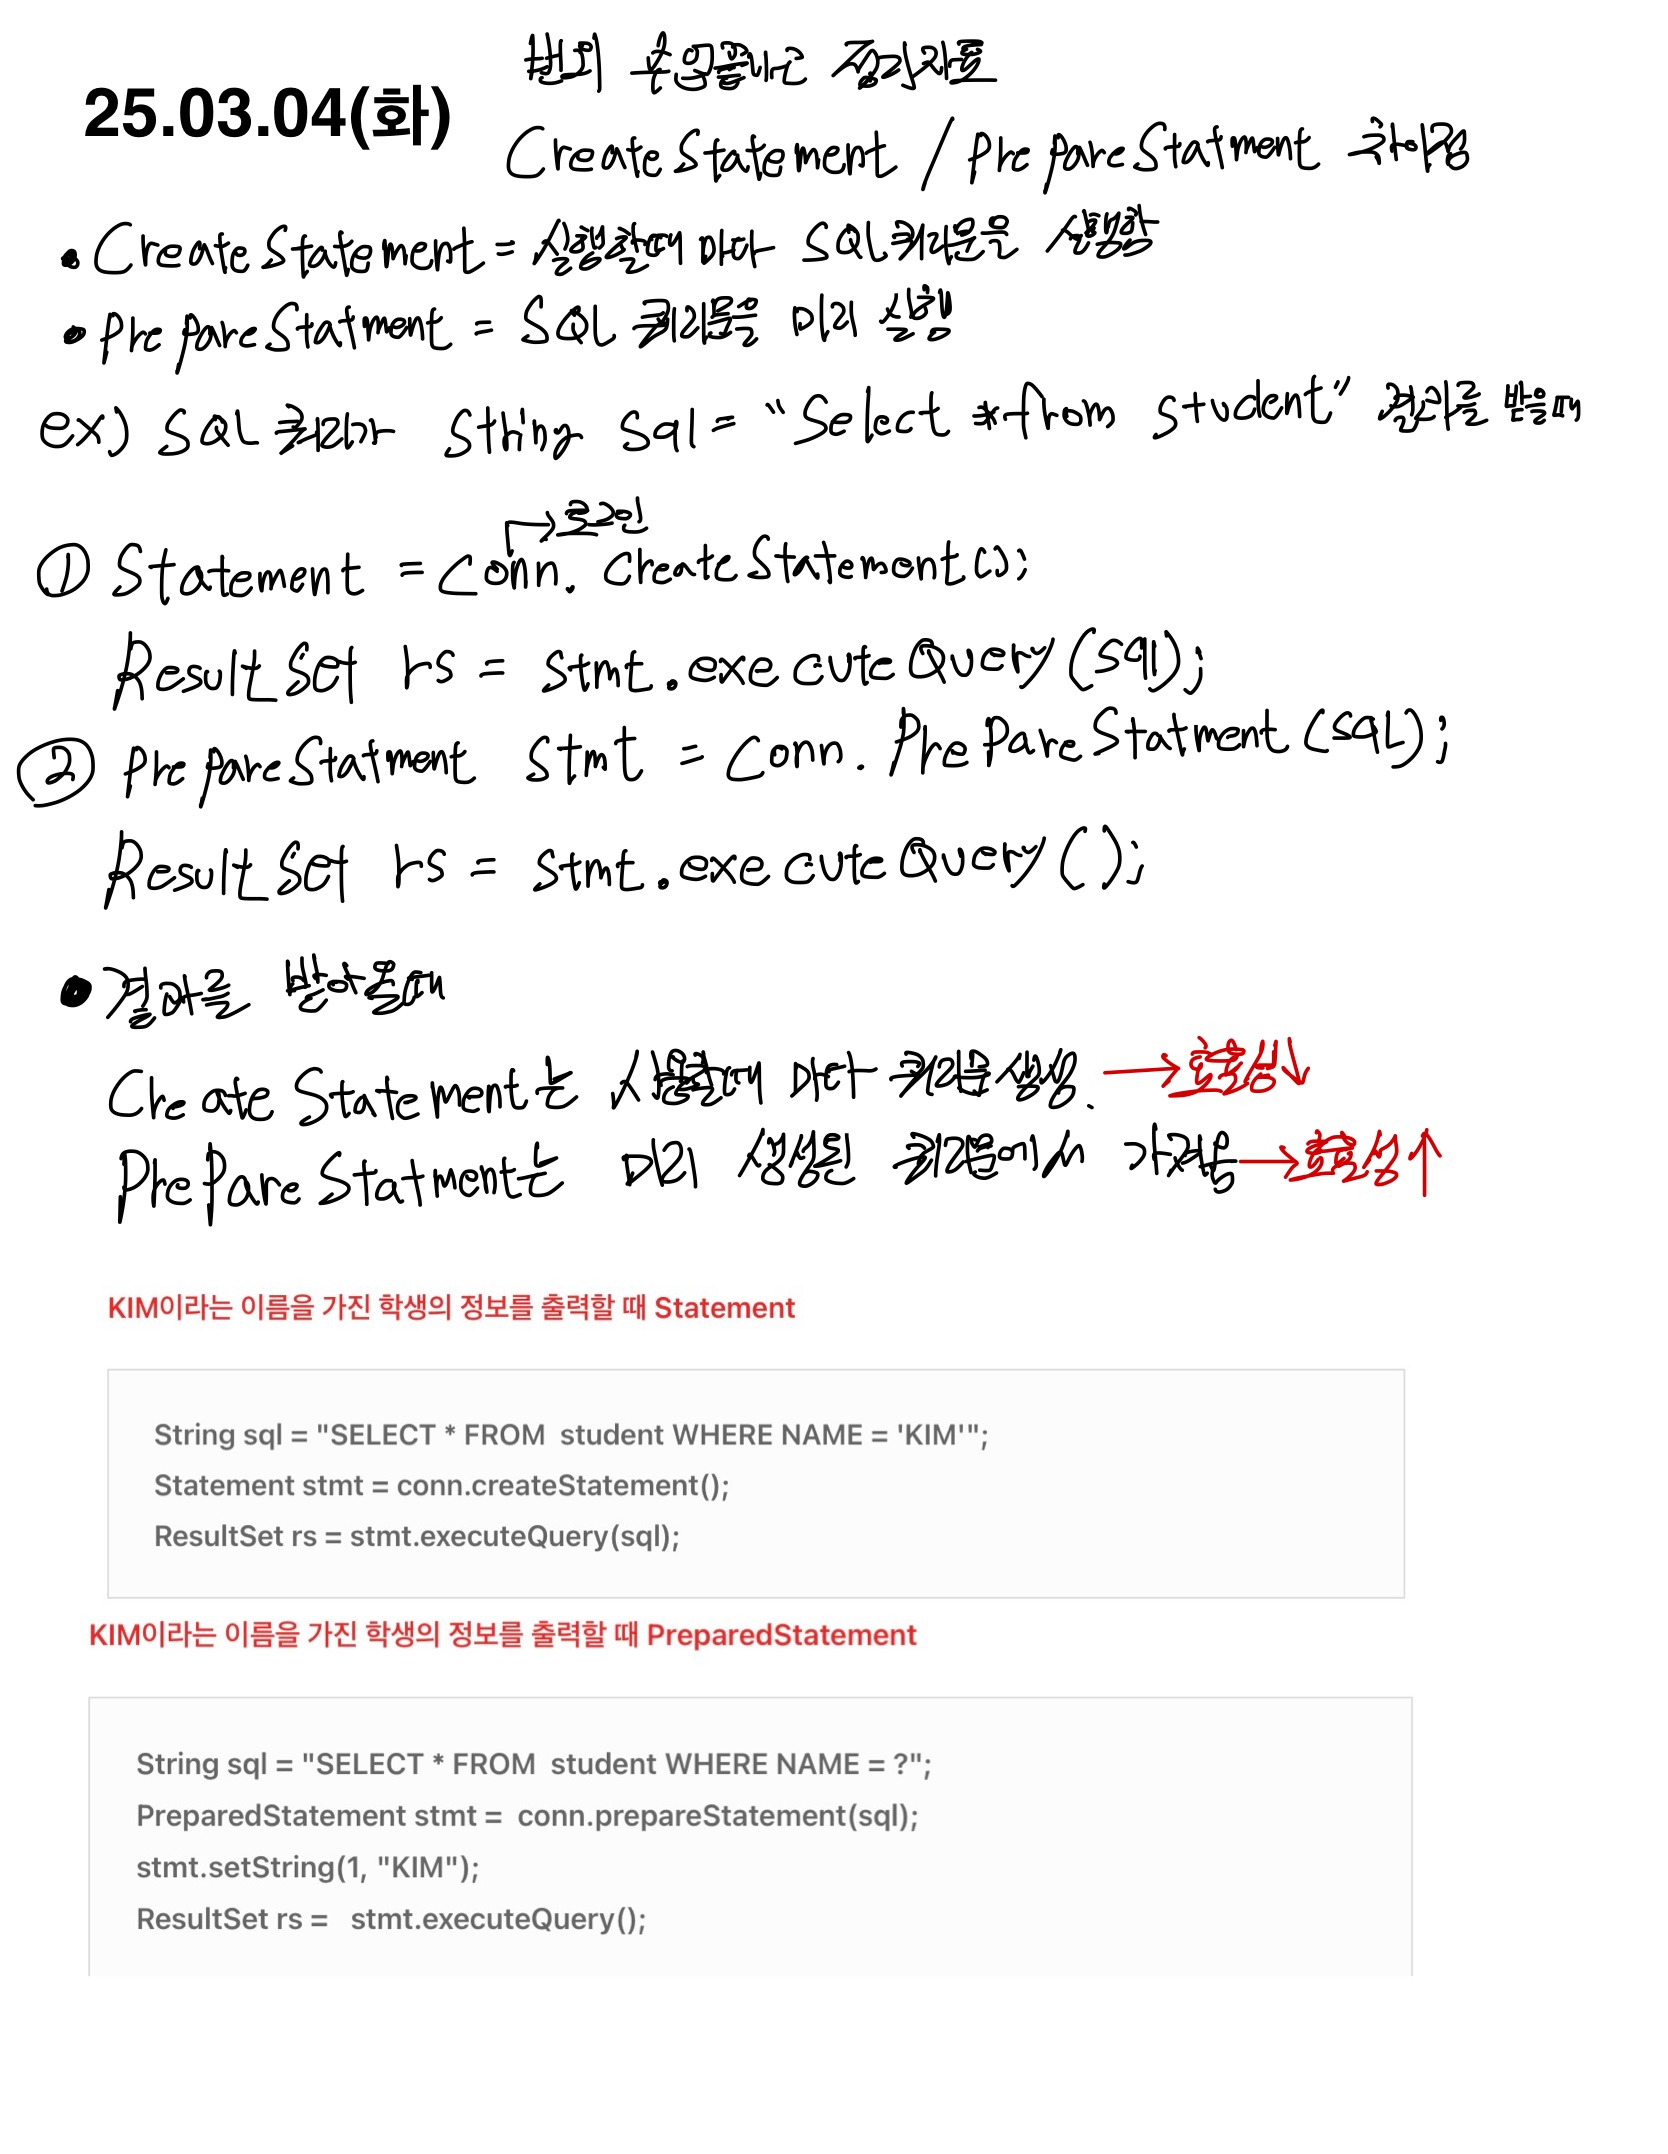 25.03.04(화)
수업끝나고 정리자료
CreateStatement / PrepareStatment 차이점
• CreateStatement = 실행할때 마다 SQL쿼리문을 실행함
• PrepareStatment = SQL 쿼리문을 미리 실행
ex) SQL 쿼리가 String sql = "Select * from student" 결과를 받을때
→로그인
① Statement = Conn. CreateStatement();
ResultSet rs = stmt.executeQuery(sql);
② PrepareStatment stmt = Conn. PrepareStatment (SQL);
ResultSet rs = stmt.executeQuery();
• 결과를 받아올때
CreateStatement는 사용할때 마다 쿼리문 생성. → 효율성↓
PrepareStatment는 미리 생성된 쿼리문에서 가져옴 → 효율성↑
KIM이라는 이름을 가진 학생의 정보를 출력할 때 Statement
String sql = "SELECT * FROM student WHERE NAME = 'KIM'";
Statement stmt = conn.createStatement();
ResultSet rs = stmt.executeQuery(sql);
KIM이라는 이름을 가진 학생의 정보를 출력할 때 PreparedStatement
String sql = "SELECT * FROM student WHERE NAME = ?";
PreparedStatement stmt = conn.prepareStatement(sql);
stmt.setString(1, "KIM");
ResultSet rs = stmt.executeQuery();